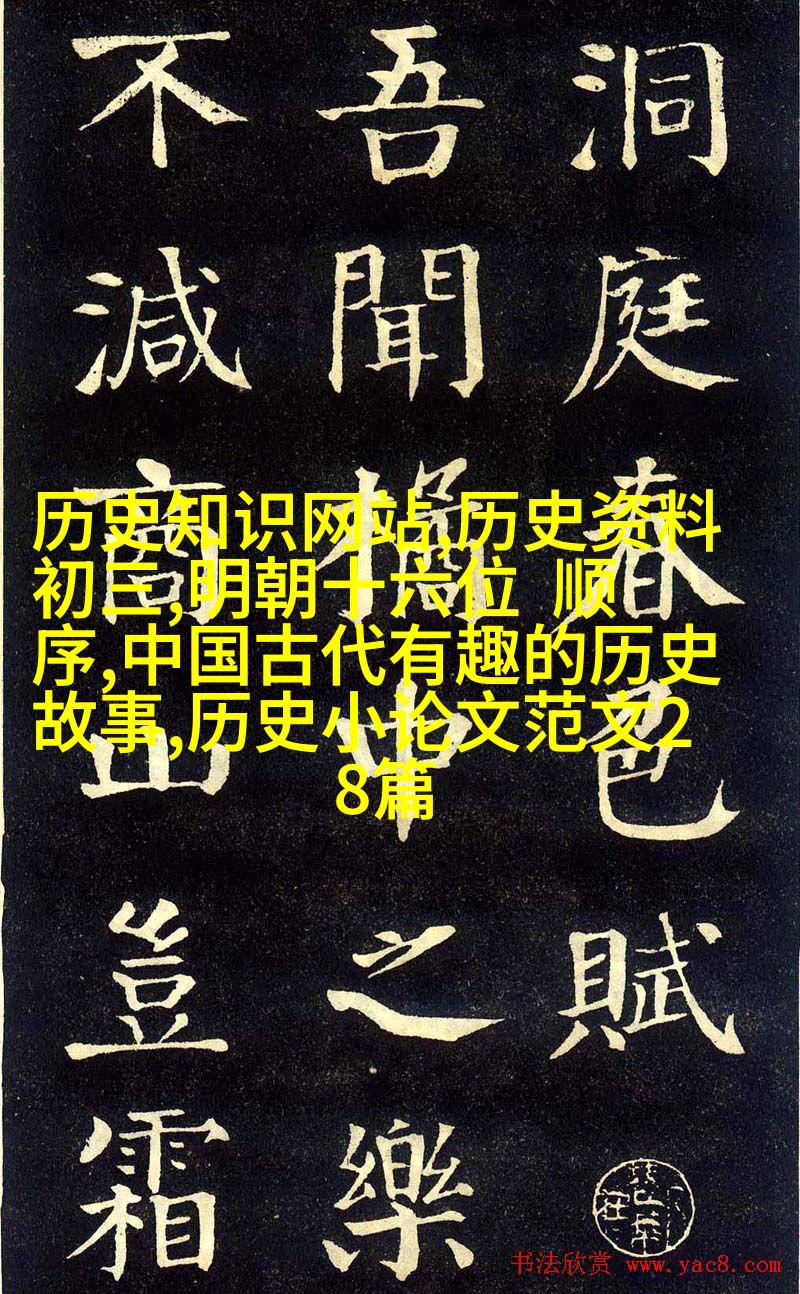 洞庭春色賦
吾聞橘中之樂
不減商山豈霜
历史知识网站,历史资料
初三,明朝十六位 顺
序,中国古代有趣的历史
故事,历史小论文范文2
8篇
书法欣赏 www.yac8.com